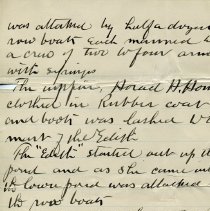 was attacked by half a dozen
row boats each manned b
a crew of two to four arm
with syringes
The skipper, Horace H. Hom
clothed in rubber coat
and boots was lashed to
mast of the Edith
The "Edith" started out up th
pond and as she came out
the lower pond was attacked
the row boats